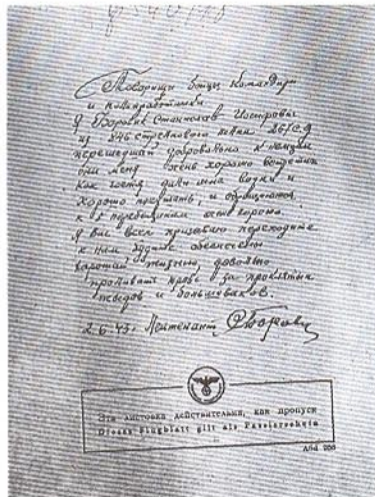 Товарищи бойцы Командиры
и политработники
Я Боровик Станислав Иосифович
из 846 стрелкового полка 267 с.д
перешедший добровольно к немцам
они меня очень хорошо встретили
Как гостя дали мне водки и
хорошо покушать, и обращаются
к перебежчикам
Я Вас всех призываю переходите
к ним будете обеспечены
хорошей жизнью, довольно
проливать кровь за проклятых
жидов и большевиков.
2.6.43. Лейтенант
Эта листовка действительна, как пропуск
Dieses Flugblatt gilt als Passierschein